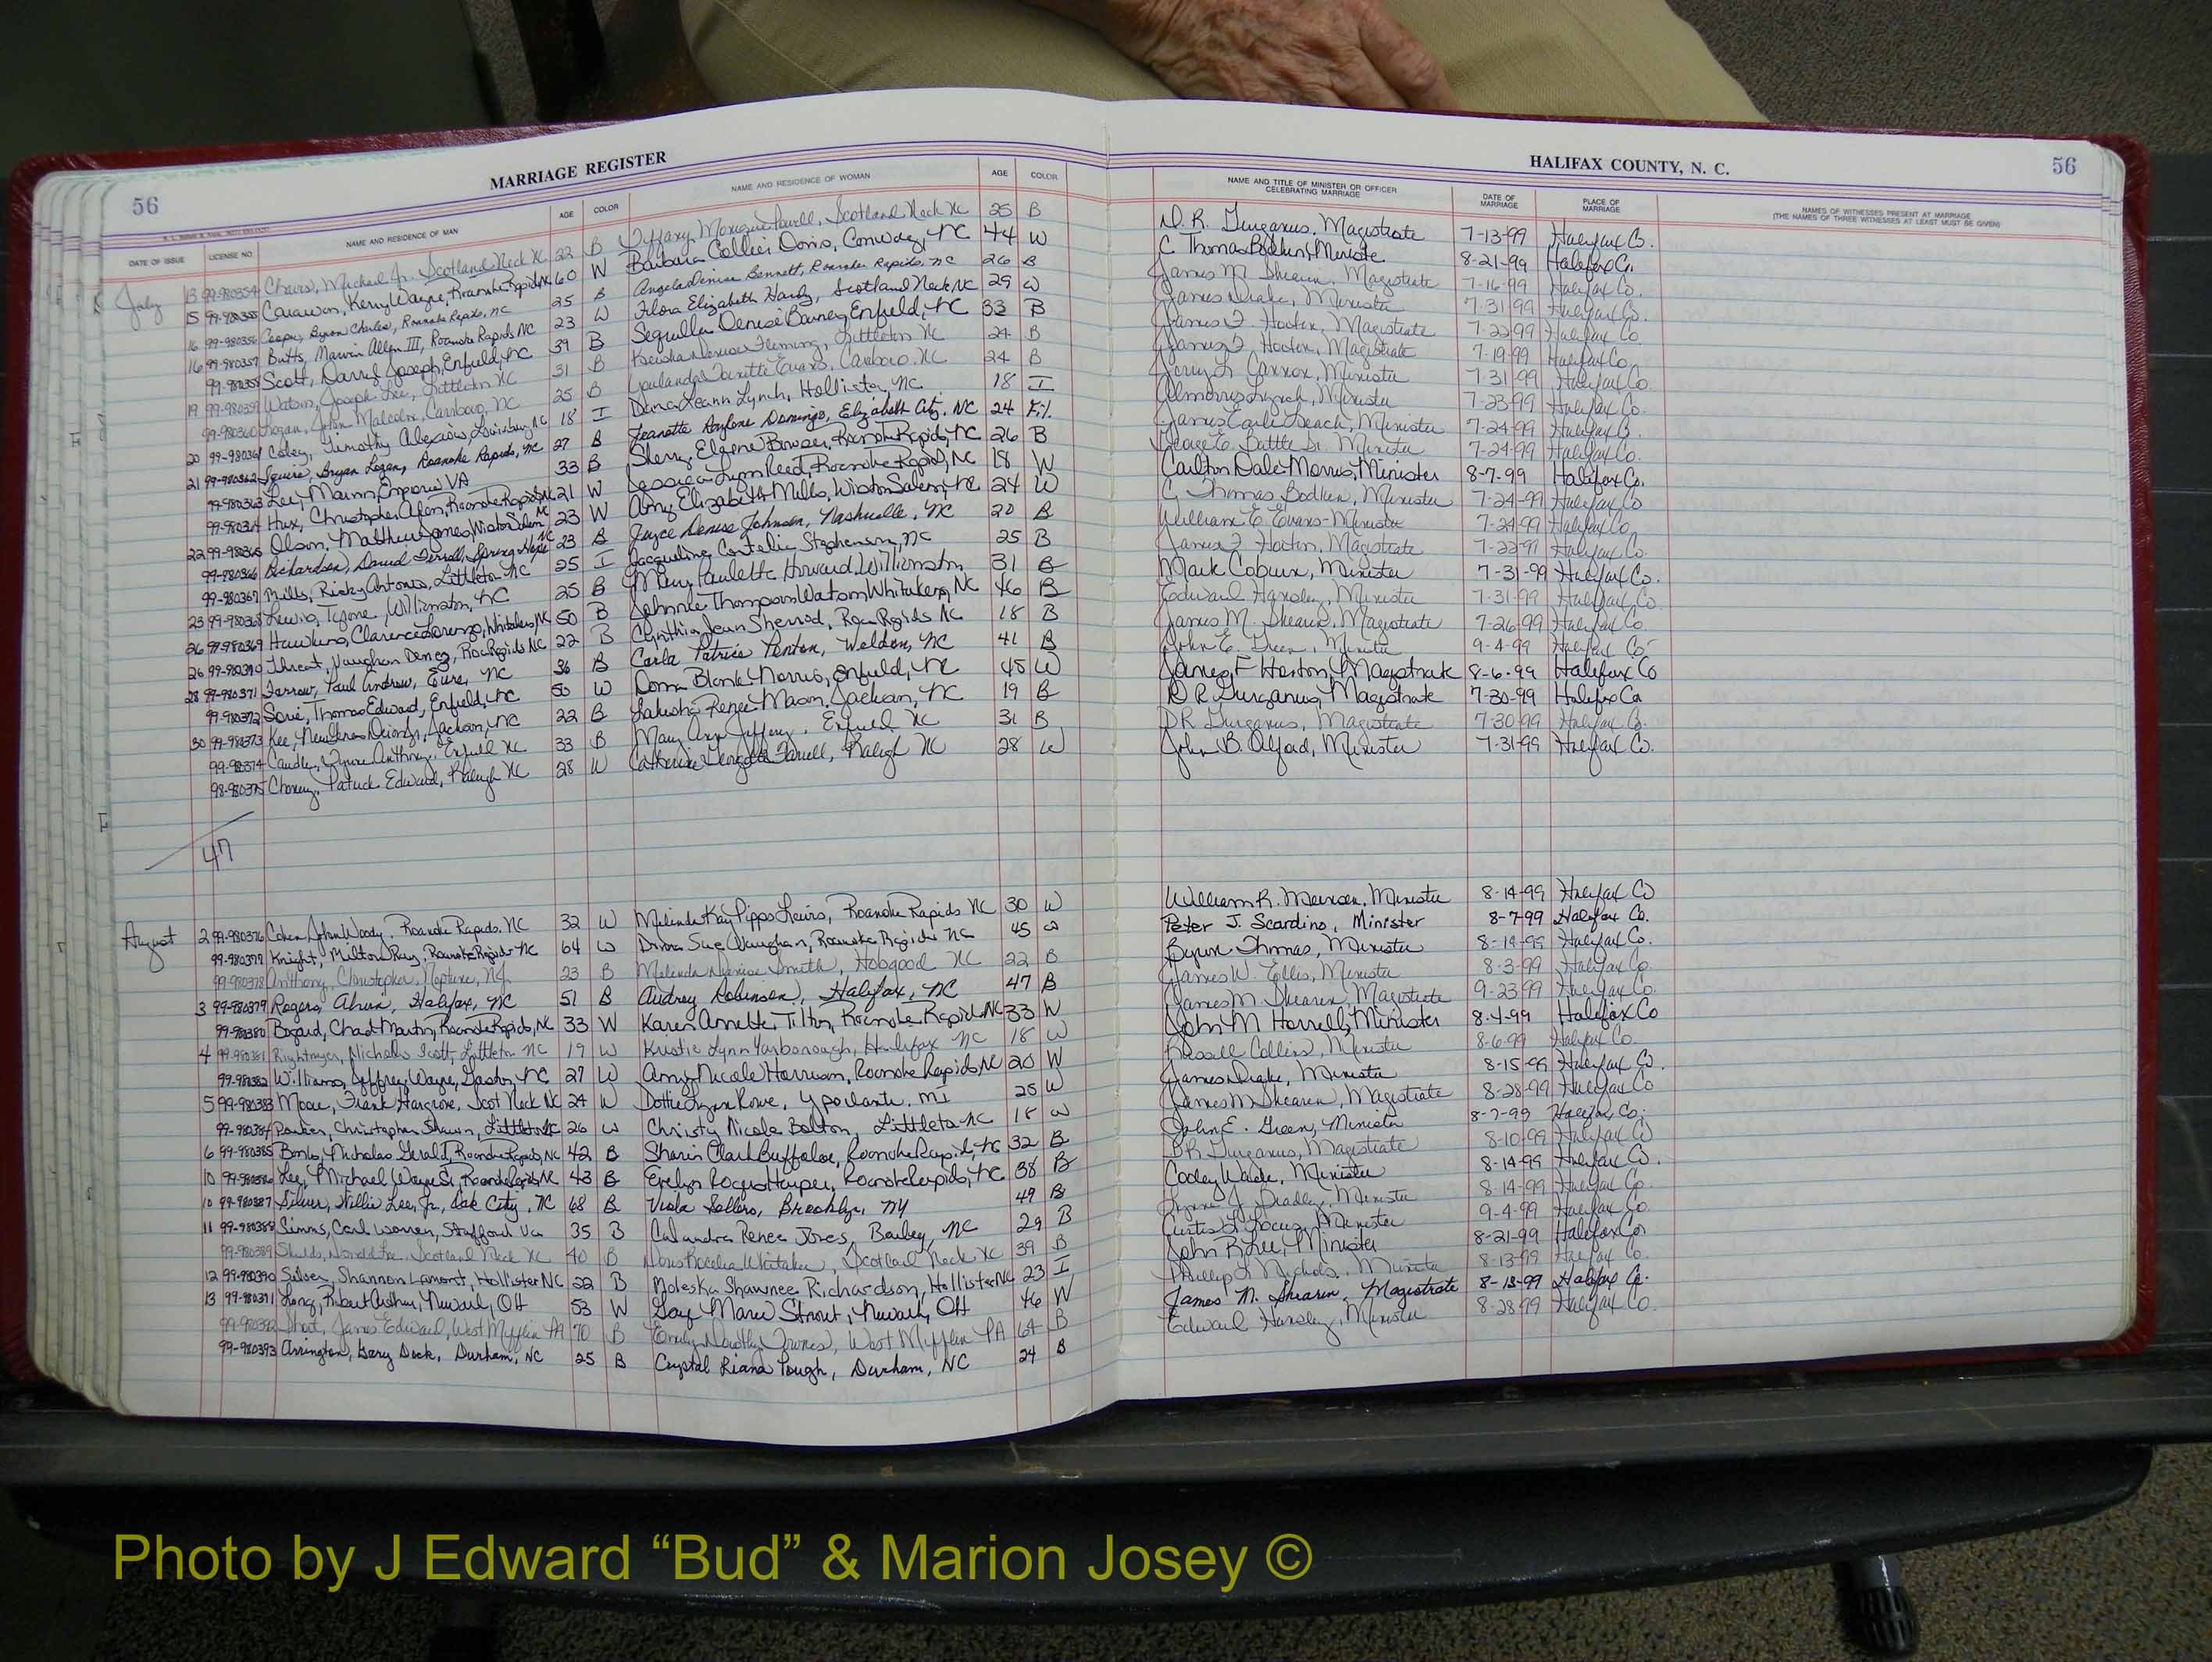 56 MARRIAGE REGISTER
HALIFAX COUNTY, N. C. 56
DATE OF ISSUE LICENSE NO. NAME AND RESIDENCE OF MAN AGE COLOR NAME AND RESIDENCE OF WOMAN AGE COLOR
NAME AND TITLE OF MINISTER OR OFFICER CELEBRATING MARRIAGE DATE OF MARRIAGE PLACE OF MARRIAGE NAMES OF WITNESSES PRESENT AT MARRIAGE
(THE NAMES OF THREE WITNESSES AT LEAST MUST BE GIVEN)
July 13 99-980354 Michael Jr. Scotland Neck NC 22 B Tiffany Powell, Scotland Neck NC 25 B D. R. Gurganus, Magistrate 7-13-99 Halifax Co.
15 99-980355 Carawan, Kerry Wayne, Roanoke Rapids NC 60 W Barbara Collier Davis, Conway, NC 44 W C Thomas Minister 8-21-99 Halifax Co.
16 99-980356 Byron Charles, Roanoke Rapids, NC 25 B Angela Denise Bennett, Roanoke Rapids, NC 26 B James M. Shearin, Magistrate 7-16-99 Halifax Co.
16 99-980357 Butts, Marvin Allen III, Roanoke Rapids NC 23 W Flora Elizabeth Hardy, Scotland Neck, NC 29 W James Drake, Minister 7-31-99 Halifax Co.
99-980358 Scott, Darryl Joseph, Enfield, NC 39 B Denise Enfield, NC 33 B James F. Magistrate 7-22-99 Halifax Co
19 99-980359 Watson, Joseph Lee, Littleton NC 31 B Fleming, Littleton NC 24 B James F. Magistrate 7-19-99 Halifax Co.
99-980360 Logan, John Malcolm, NC 25 B Evans, NC 24 B Jerry Minister 7-31-99 Halifax Co.
20 99-980361 Timothy Louisburg NC 18 I Dana Leann Lynch, Hollister, NC 18 I Lynch, Minister 7-23-99 Halifax Co.
21 99-980362 Squire, Bryan Logan, Roanoke Rapids, NC 27 B Jeanette Domingo, Elizabeth City, NC 24 Fil. James Earl Minister 7-24-99 Halifax Co.
99-980363 Lee, Emporia VA 33 B Sherry Bowser, Roanoke Rapids, NC 26 B Battle Sr. Minister 7-24-99 Halifax Co.
99-980364 Hux, Christopher Roanoke Rapids NC 21 W Jessica Lynn Reed, Roanoke Rapids, NC 18 W Carlton Dale Morris, Minister 8-7-99 Halifax Co.
22 99-980365 Olson, Matthew James, Winston Salem NC 23 W Amy Elizabeth Mills, Winston Salem, NC 24 W C. Thomas Minister 7-24-99 Halifax Co
99-980366 Richardson, David Spring Hope NC 23 B Joyce Denise Johnson, Nashville, NC 20 B William E. Evans-Minister 7-24-99 Halifax Co.
99-980367 Mills, Ricky Antonio, Littleton NC 25 I Jacqueline NC 25 B James F. Magistrate 7-22-99 Halifax Co.
23 99-980368 Lewis, Tyrone, Williamston, NC 25 B Mary Paulette Howard, Williamston 31 B Mark Coburn, Minister 7-31-99 Halifax Co.
26 99-980369 Hawkins, Clarence Lorenzo, Whitakers NC 50 B Johnnie Thompson Watson Whitakers, NC 46 B Edward Minister 7-31-99 Halifax Co
26 99-980370 Threat, Vaughan 22 B Cynthia Jean Sherrod, Roa Rapids NC 18 B James M. Shearin, Magistrate 7-26-99 Halifax Co.
28 99-980371 Farrow, Paul Andrew, Eure, NC 36 B Carla Patrice Weldon, NC 41 B John E. Green, Minister 9-4-99 Halifax Co
99-980372 Thomas Edward, Enfield, NC 50 W Norris, Enfield, NC 45 W James F Magistrate 8-6-99 Halifax Co
30 99-980373 Kee, Jackson, NC 22 B Lakisha Renee Mason, Jackson, NC 19 B D R Gurganus, Magistrate 7-30-99 Halifax Co
99-980374 Anthony, Enfield NC 33 B Mary Ann Enfield NC 31 B D R Gurganus, Magistrate 7-30-99 Halifax Co.
99-980375 Patrick Edward, Raleigh NC 28 W Catherine Raleigh NC 28 W John B. Alford, Minister 7-31-99 Halifax Co.
47
August 2 99-980376 John Woody, Roanoke Rapids, NC 32 W Melinda Kay Lewis, Roanoke Rapids NC 30 W William R. Minister 8-14-99 Halifax Co
99-980377 Knight, Milton Ray, Roanoke Rapids NC 64 W Sue Vaughan, Roanoke Rapids NC 45 W Peter J. Scardino, Minister 8-7-99 Halifax Co.
99-980378 Anthony, Christopher, Neptune, NJ 23 B Melinda Denise Smith, Hobgood NC 22 B Thomas, Minister 8-14-99 Halifax Co.
3 99-980379 Rogers Halifax, NC 51 B Audrey Robinson, Halifax, NC 47 B James W. Ellis, Minister 8-3-99 Halifax Co
99-980380 Chad Martin, Roanoke Rapids, NC 33 W Karen Annette Tilton, Roanoke Rapids NC 33 W James M. Shearin, Magistrate 9-23-99 Halifax Co.
4 99-980381 Rightmyer, Nicholas Scott, Littleton NC 19 W Kristie Lynn Yarborough, Halifax NC 18 W John M Harrell, Minister 8-4-99 Halifax Co
99-980382 Williams, Jeffrey Wayne, Gaston, NC 27 W Amy Nicole Harrison, Roanoke Rapids NC 20 W Russell Collins, Minister 8-6-99 Halifax Co.
5 99-980383 Moore, Frank Hargrove, Scot Neck NC 24 W Dottie Lynn Rowe, Ypsilanti, MI 25 W James Drake, Minister 8-15-99 Halifax Co.
99-980384 Parker, Christopher Shawn, Littleton NC 26 W Christy Nicole Bolton, Littleton NC 18 W James M Shearin, Magistrate 8-28-99 Halifax Co
6 99-980385 Nicholas Gerald, Roanoke Rapids, NC 42 B Clark Buffaloe, Roanoke Rapids, NC 32 B John E. Green, Minister 8-7-99 Halifax Co.
10 99-980386 Lee, Michael Wayne Sr. Roanoke Rapids NC 43 B Evelyn Harper, Roanoke Rapids, NC 38 B D R Gurganus, Magistrate 8-10-99 Halifax Co
10 99-980387 Silver, Willie Lee, Jr., Oak City, NC 68 B Viola Sellers, Brooklyn, NY 49 B Cooley Wade, Minister 8-14-99 Halifax Co.
11 99-980388 Simms, Carl Warren, Stafford Va 35 B Calandra Renee Jones, Bailey, NC 29 B J. Bradley, Minister 8-14-99 Halifax Co.
99-980389 Shields, Donald Lee, Scotland Neck NC 40 B Whitaker, Scotland Neck, NC 39 B Curtis Minister 9-4-99 Halifax Co.
12 99-980390 Silver, Shannon Lamont, Hollister NC 22 B Moleska Shawnee Richardson, Hollister NC 23 I John R. Minister 8-21-99 Halifax Co
13 99-980391 Long, Robert Arthur, Newark, OH 53 W Gay Marie Strout, Newark, OH 46 W Phillip L. Nichols, Minister 8-13-99 Halifax Co.
99-980392 James Edward, West Mifflin PA 70 B Emily Dorothy West Mifflin PA 64 B James M. Shearin, Magistrate 8-13-99 Halifax Co.
99-980393 Arrington, Gary Dock, Durham, NC 25 B Crystal Riana Pough, Durham, NC 24 B Edward Minister 8-28-99 Halifax Co.
Photo by J Edward “Bud” & Marion Josey ©